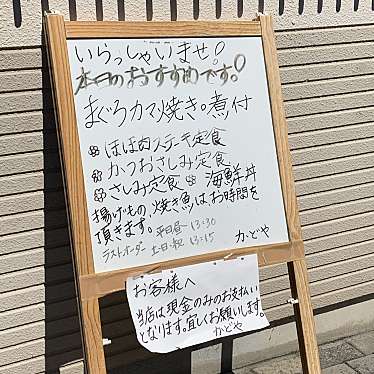 いらっしゃいませ！
本日のおすすめです！
まぐろカマ焼き。煮付
ほほ肉ステーキ定食
かつおさしみ定食
さしみ定食 海鮮丼
揚げもの、焼き魚はお時間を
頂きます。
平日昼 13:30
ラストオーダー 土日・祝 13:15
かどや
お客様へ
当店は現金のみのお支払い
となります。宜しくお願いします。
かどや